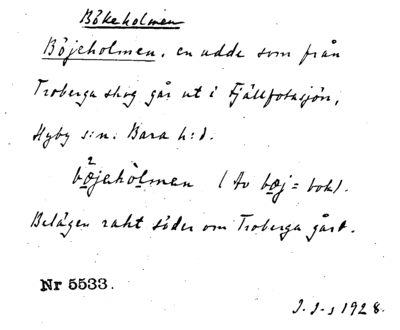 Bökeholmen
Böjeholmen, en udde som från
Troberga skog går ut i Fjällfotasjön,
Hyby s:n. Bara h:d.
bœ̀jehòlmen (Av bœj = bok).
Belägen rakt söder om Troberga gård.
Nr 5533.
1928.